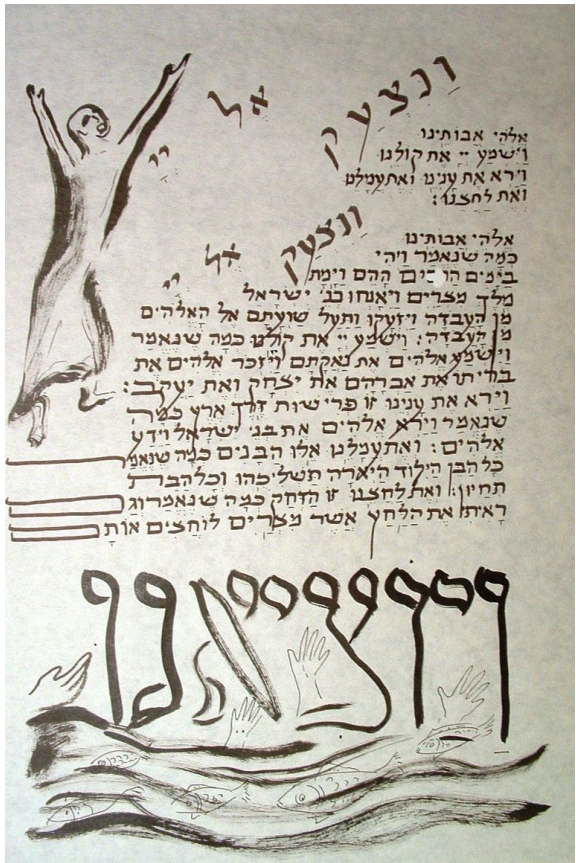 ונצעק אל יי
אלהי אבותינו
וישמע יי את קולנו
וירא את ענינו ואת עמלנו
ואת לחצנו:
ונצעק אל יי
אלהי אבותינו
כמה שנאמר ויהי
בימים הרבים ההם וימת
מלך מצרים ויאנחו בני ישראל
מן העבדה ויזעקו ותעל שועתם אל האלהים
מן העבדה: וישמע יי את קולנו כמה שנאמר
וישמע אלהים את נאקתם ויזכר אלהים את
בריתו את אברהם את יצחק ואת יעקב:
וירא את ענינו זו פרישות דרך ארץ כמה
שנאמר וירא אלהים את בני ישראל וידע
אלהים: ואת עמלנו אלו הבנים כמה שנאמר
כל הבן הילוד היארה תשליכהו וכל הבת
תחיון: ואת לחצנו זו הדחק כמה שנאמר וגם
ראיתי את הלחץ אשר מצרים לוחצים אותם